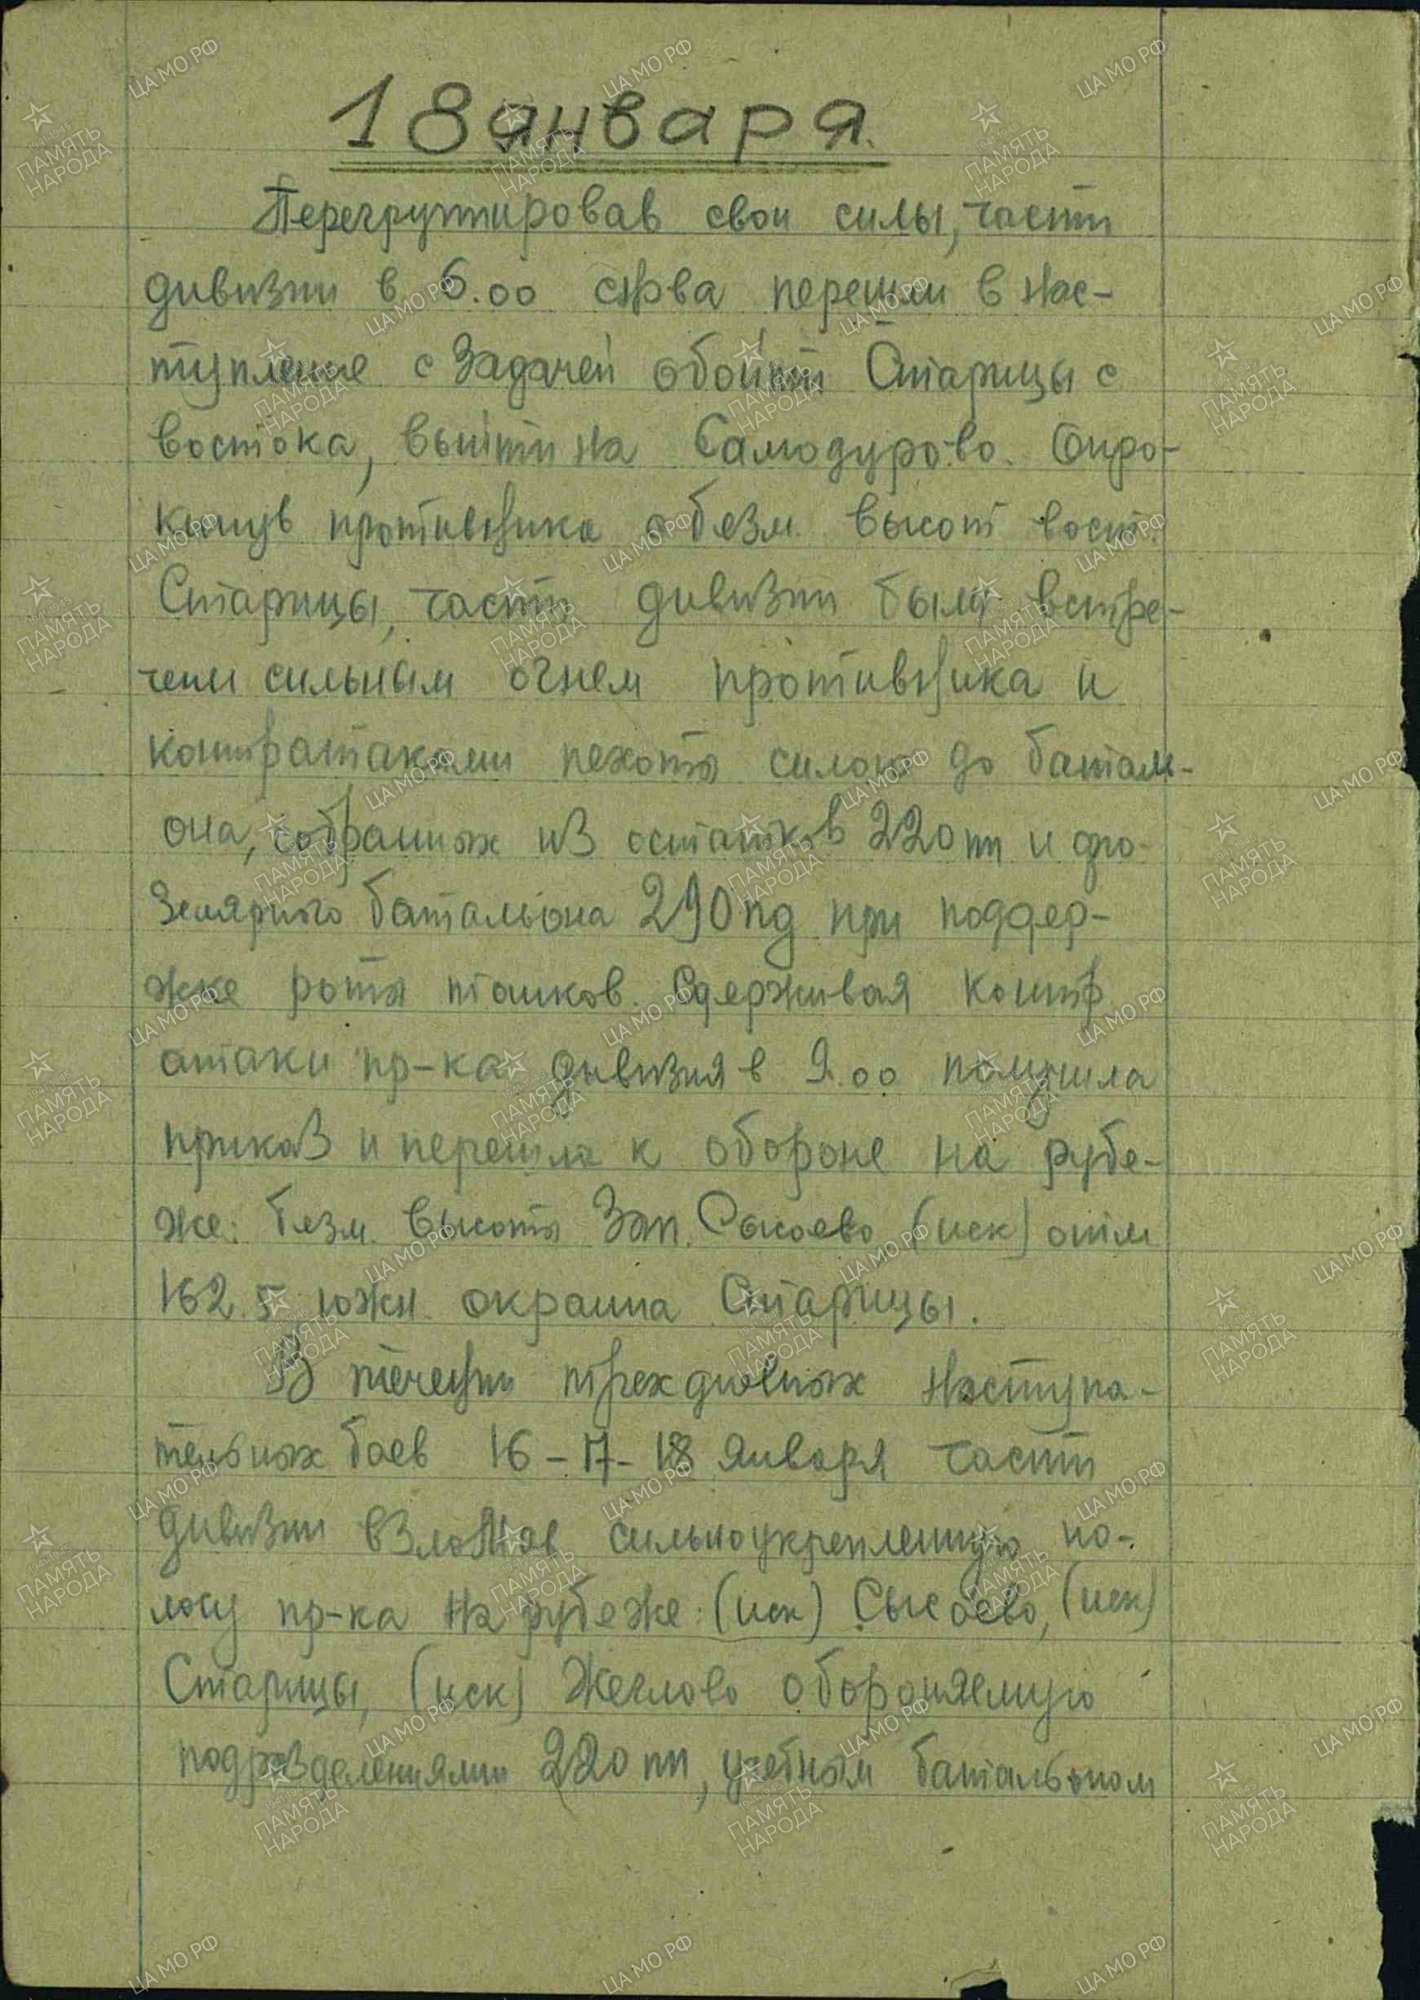 18 января.
Перегруппировав свои силы, части
дивизии в 6.00 снова перешли в нас-
тупление с задачей обойти Старицы с
востока, выйти на Самодурово. Опро-
кинув противника с безм. высот вост.
Старицы, части дивизии были встре-
чены сильным огнем противника и
контратаками пехоты силою до баталь-
она, собранных из остатков 220 пп и фю-
зелярного батальона 290 пд при поддер-
жке роты танков. Сдерживая контр
атаки пр-ка дивизия в 9.00 получила
приказ и перешла к обороне на рубе-
же: безм. высоты Зап. Сысоево (иск) отм
162.5 южн. окраина Старицы.
В течении трехдневных наступа-
тельных боев 16-17-18 января части
дивизии взломав сильноукрепленную по-
лосу пр-ка на рубеже: (иск) Сысоево, (иск)
Старицы, (иск) Жеглово обороняемую
подразделениями 220 пп, учебным батальоном